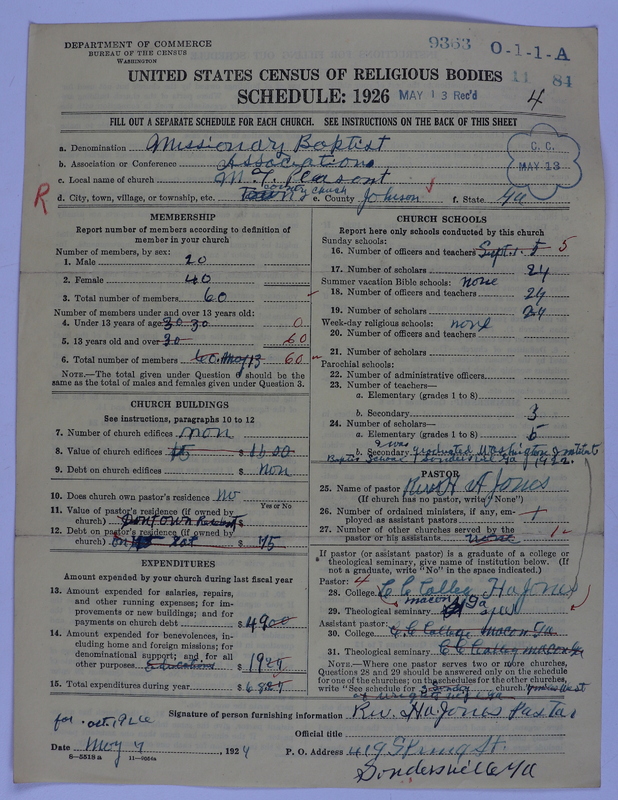 DEPARTMENT OF COMMERCE
BUREAU OF THE CENSUS
WASHINGTON
9363 O-1-1-A
11 84
UNITED STATES CENSUS OF RELIGIOUS BODIES
SCHEDULE: 1926 MAY 13 Rec'd 4
FILL OUT A SEPARATE SCHEDULE FOR EACH CHURCH. SEE INSTRUCTIONS ON THE BACK OF THIS SHEET
a. Denomination Missionary Baptist
b. Association or Conference Association
c. Local name of church M.T. Pleasant
C. C.
MAY 13
R d. City, town, village, or township, etc. Town country church e. County Johnson f. State Ga
MEMBERSHIP
Report number of members according to definition of
member in your church
Number of members, by sex:
1. Male 20
2. Female 40
3. Total number of members 60
Number of members under and over 13 years old:
4. Under 13 years of age 30 30 0
5. 13 years old and over 30 60
6. Total number of members 60 May 13 60
NOTE.—The total given under Question 6 should be
same as the total of males and females given under Question 3.
CHURCH BUILDINGS
See instructions, paragraphs 10 to 12
7. Number of church edifices non
8. Value of church edifices $
9. Debt on church edifices $ Non
10. Does church own pastor's residence No
Yes or No
11. Value of pastor's residence (if owned by
church) $
12. Debt on pastor's residence (if owned by
church) lot $ 75
EXPENDITURES
Amount expended by your church during last fiscal year
13. Amount expended for salaries, repairs,
and other running expenses; for im-
provements or new buildings; and for
payments on church debt $ 4900
14. Amount expended for benevolences, in-
cluding home and foreign missions; for
denominational support; and for all
other purposes Educations $
15. Total expenditures during year $
CHURCH SCHOOLS
Report here only schools conducted by this church
Sunday schools:
16. Number of officers and teachers Sept. 1. 5 5
17. Number of scholars 24
Summer vacation Bible schools: none
18. Number of officers and teachers 24
19. Number of scholars 24
Week-day religious schools: none
20. Number of officers and teachers
21. Number of scholars
Parochial schools:
22. Number of administrative officers
23. Number of teachers—
a. Elementary (grades 1 to 8)
b. Secondary 3
24. Number of scholars—
a. Elementary (grades 1 to 8) 5
I was
b. Secondary graduated Washington Institut
Baptis School Sondersvill Ga 1922.
PASTOR
25. Name of pastor H A Jones
(If church has no pastor, write "None")
26. Number of ordained ministers, if any, em-
ployed as assistant pastors
27. Number of other churches served by the
pastor or his assistants none 1
If pastor (or assistant pastor) is a graduate of a college or
theological seminary, give name of institution below. (If
not a graduate, write "No" in the space indicated.)
Pastor: 4
28. College C C Colley Ha Jones
macon Ga
29. Theological seminary
Assistant pastor:
30. College C. C. College macon Ga.
31. Theological seminary C C Colley macon Ga
NOTE.—Where one pastor serves two or more churches,
Questions 28 and 29 should be answered only on the schedule
for one of the churches; on the schedules for the other churches,
write "See schedule for church,
Signature of person furnishing information Rev. Ha Jones Pasta
Official title
Date May 7, 1924 P. O. Address 419 Spring St.
8—5518a 11—9064a
Sondersville Ga